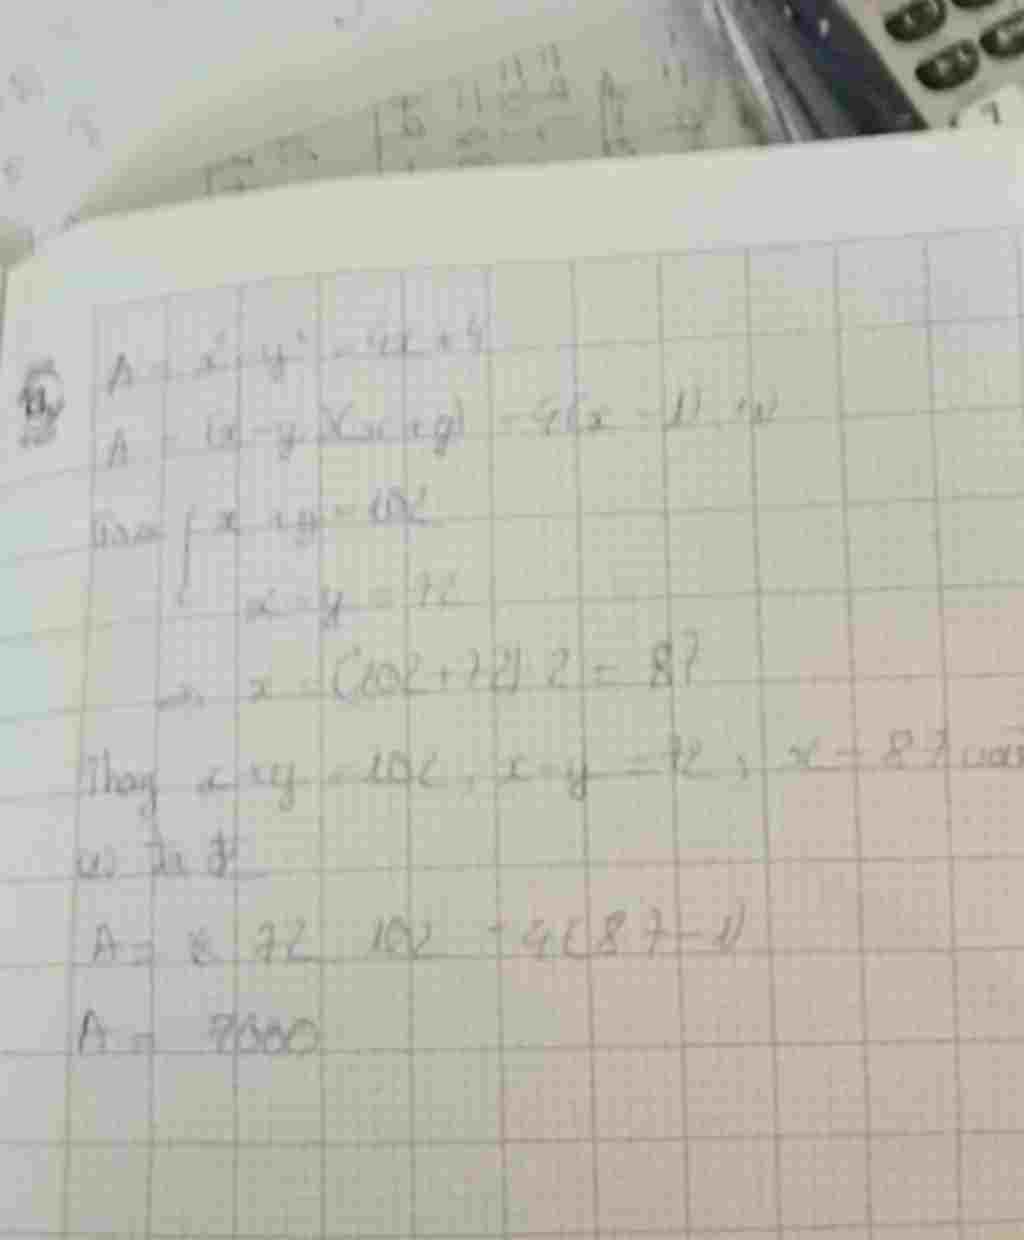 A = x² - y² - 4x + 4
A = (x - y)(x + y) - 4(x - 1) (*)
x + y = 102
x - y = 72
=> x = (102 + 72) : 2 = 87
Thay x + y = 102, x - y = 72, x = 87 vào
(*) ta
A = 72 . 102 - 4(87 - 1)
A = 7000